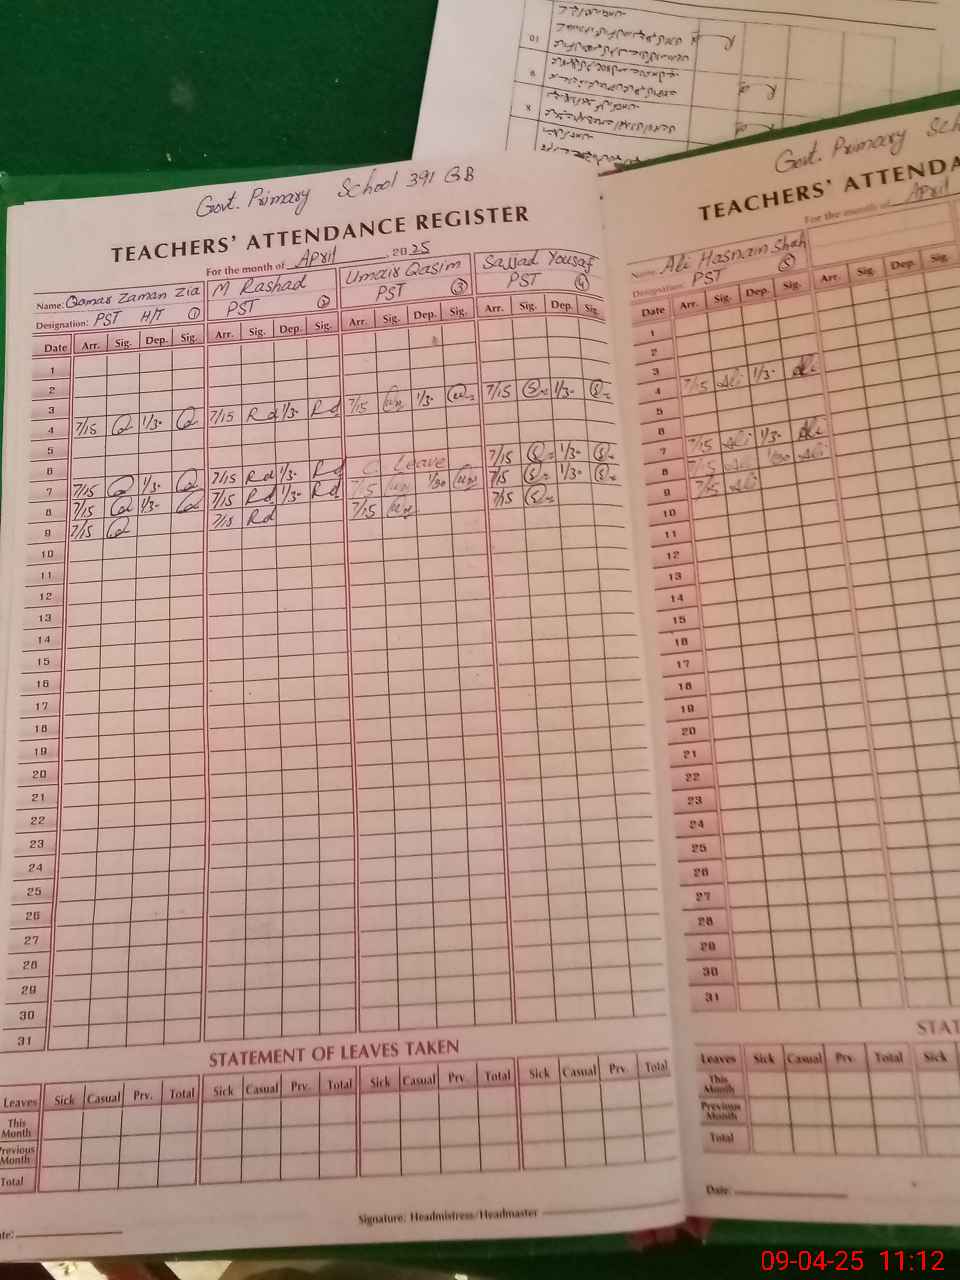 Govt. Primary School 391 GB
TEACHERS' ATTENDANCE REGISTER
For the month of April, 2025
Name: Qamar Zaman Zia M Rashad Umair Qasim Sajjad Yousaf
Designation: PST H/T 1 PST 2 PST 3 PST 4
Date Arr. Sig. Dep. Sig. Arr. Sig. Dep. Sig. Arr. Sig. Dep. Sig. Arr. Sig. Dep. Sig.
1
2
3
4 7/15 1/30 7/15 Rd 1/30 Rd 7/15 1/30 7/15 1/30
5
6
7 7/15 1/30 7/15 Rd 1/30 Rd C. Leave 7/15 1/30
8 7/15 1/30 7/15 Rd 1/30 Rd 7/15 1/30 7/15 1/30
9 7/15 7/15 Rd 7/15 7/15
10
11
12
13
14
15
16
17
18
19
20
21
22
23
24
25
26
27
28
29
30
31
STATEMENT OF LEAVES TAKEN
Leaves Sick Casual Prv. Total Sick Casual Prv. Total Sick Casual Prv. Total Sick Casual Prv. Total
This Month
Previous Month
Total
Signature: Headmistress/Headmaster
Govt. Primary Sch
TEACHERS' ATTENDA
For the month of April
Name: Ali Hasnain Shah
Designation: PST 5
Date Arr. Sig. Dep. Sig. Arr. Sig. Dep. Sig.
1
2
3
4 7/15 Ali 1/30 Ali
5
6
7 7/15 Ali 1/30 Ali
8 7/15 Ali 1/30 Ali
9 7/15 Ali
10
11
12
13
14
15
16
17
18
19
20
21
22
23
24
25
26
27
28
29
30
31
STAT
Leaves Sick Casual Prv. Total Sick
This Month
Previous Month
Total
Date:
09-04-25 11:12